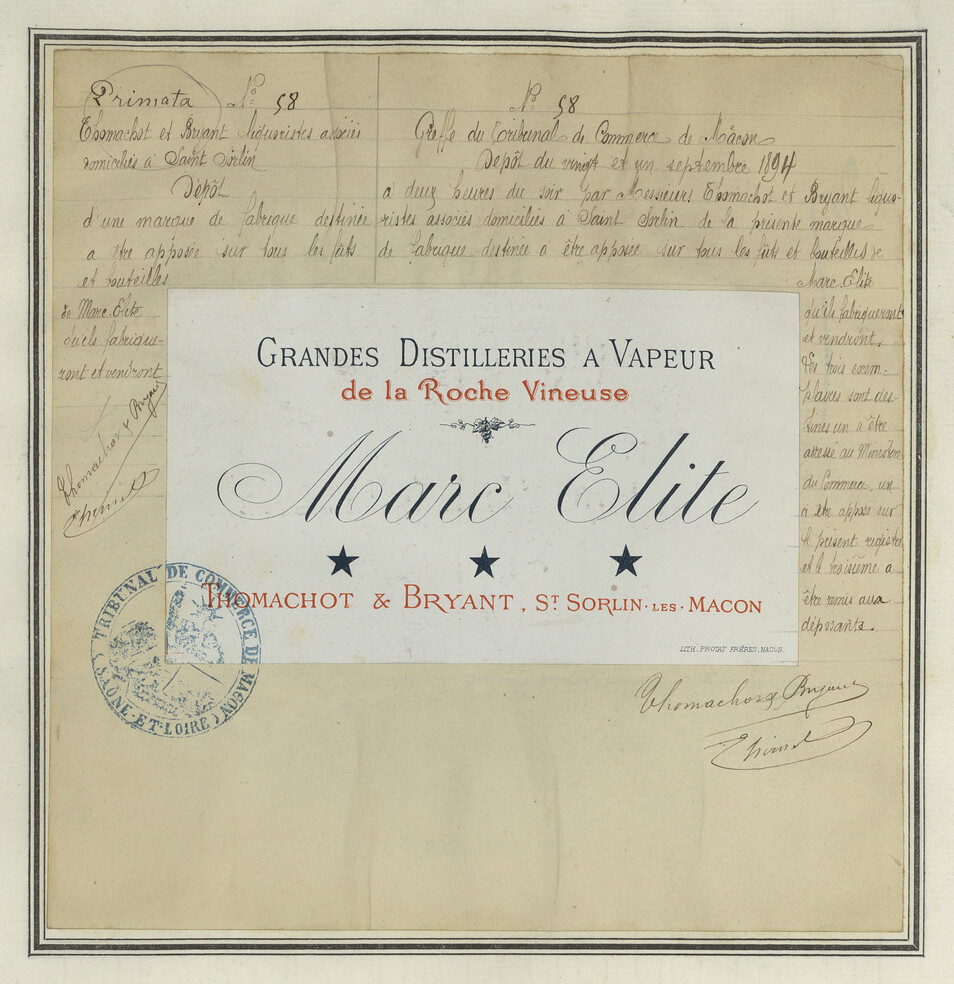 Primata N° 58
Thomachot et Bryant liquoristes associés
domiciliés à Saint Sorlin
Dépôt
d'une marque de fabrique destinée
a être apposée sur tous les fûts
et bouteilles
de Marc Elite
qu'ils fabrique-
ront et vendront
Thomachot & Bryant
N° 58
Greffe du Tribunal de Commerce de Mâcon
Dépôt du vingt et un septembre 1894
à deux heures du soir par Messieurs Thomachot et Bryant liquo-
ristes associés domiciliés à Saint Sorlin de la présente marque
de fabrique destinée à être apposée sur tous les fûts et bouteilles de
Marc Elite
qu'ils fabriqueront
et vendront.
Des trois exem-
plaires sont des-
tinés un à être
adressé au Ministère
du Commerce, un
à être apposé sur
le présent registre
et le troisième a
être remis aux
déposants.
Thomachot & Bryant
GRANDES DISTILLERIES A VAPEUR
de la Roche Vineuse
Marc Elite
THOMACHOT & BRYANT, ST SORLIN-LES-MACON
LITH. PROTAT FRÈRES, MACON.
TRIBUNAL DE COMMERCE DE MACON
(SAÔNE-ET-LOIRE)